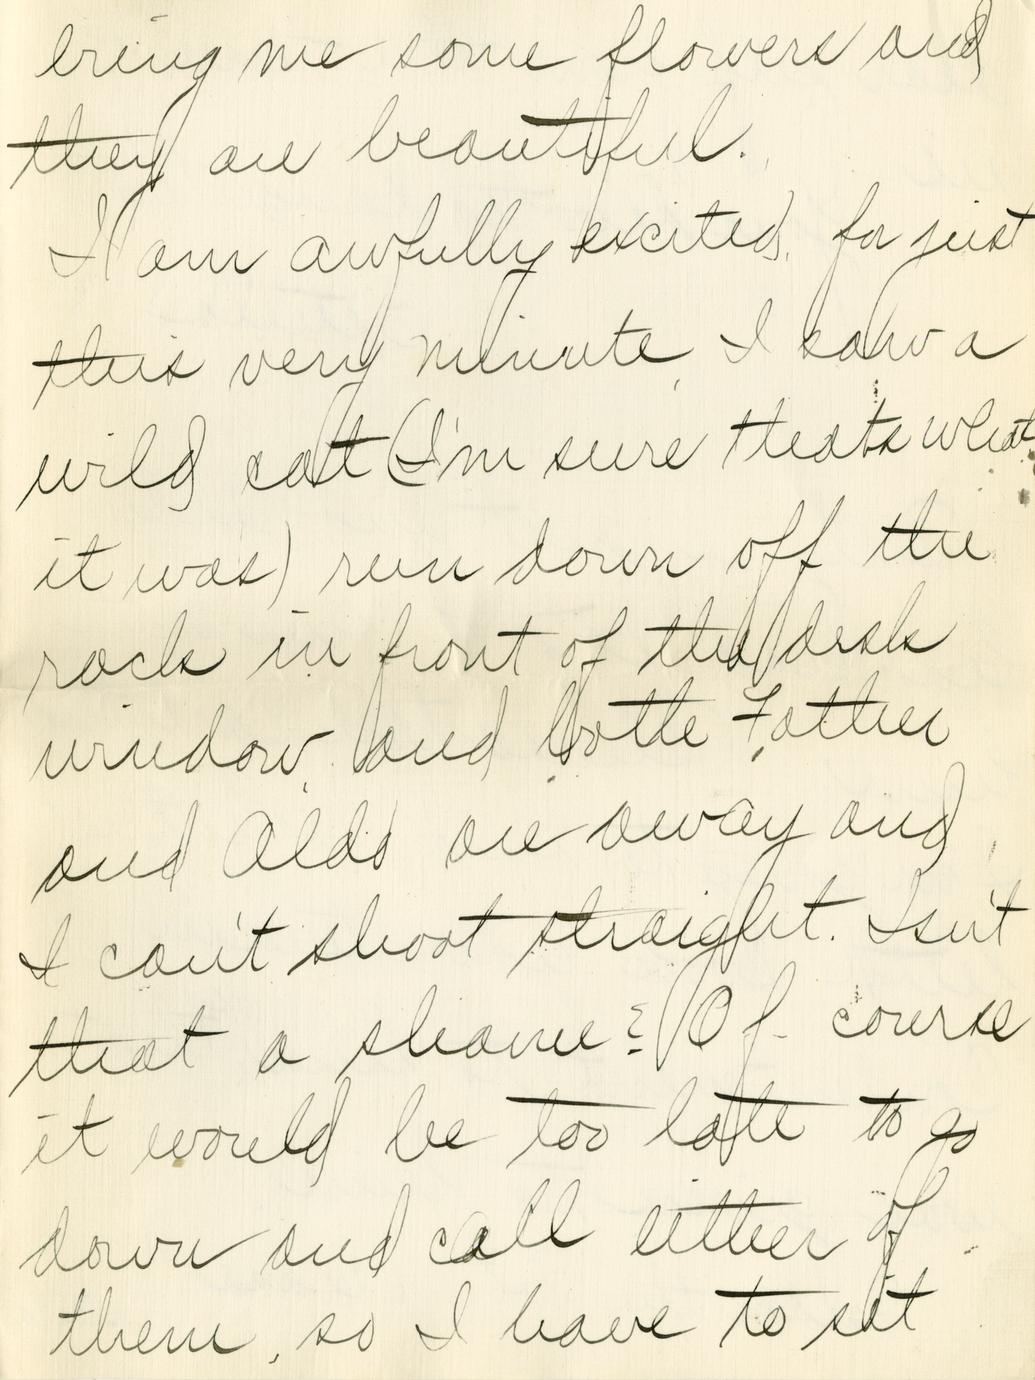 bring me some flowers and
they are beautiful.
I am awfully excited, for just
this very minute, I saw a
wild cat (I'm sure thats what
it was) run down off the
rocks in front of the desk
window, and both Father
and Aldo are away and
I can't shoot straight. Isn't
that a shame? Of course
it would be too late to go
down and call either of
them, so I have to sit